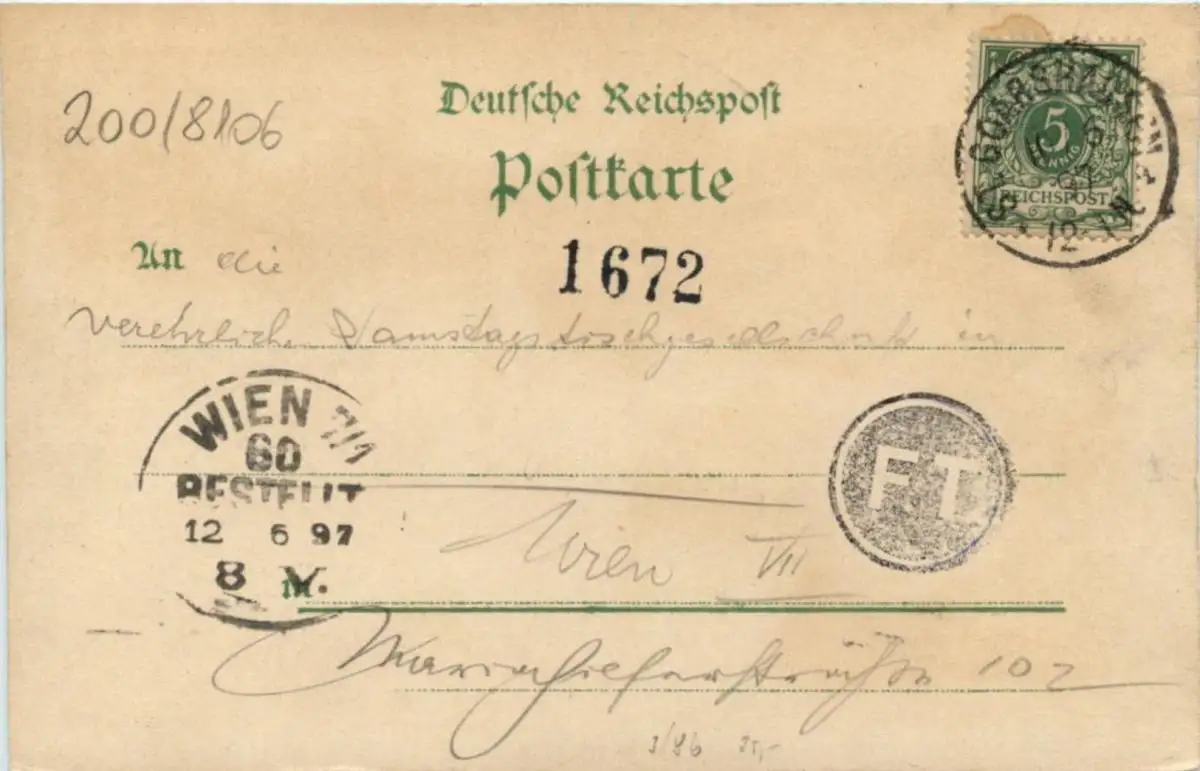 Deutsche Reichspost
Postkarte
200/8106
5
PFENNIG
REICHSPOST
ST. GOARSHAUSEN
6
97
12-1N.
1672
An die
verehrliche Samstagstischgesellschaft in
WIEN 7/1
60
BESTELLT
12 6 97
8 V.
FT
in
Wien VII
Mariahilferstraße 102
3/86 35,-